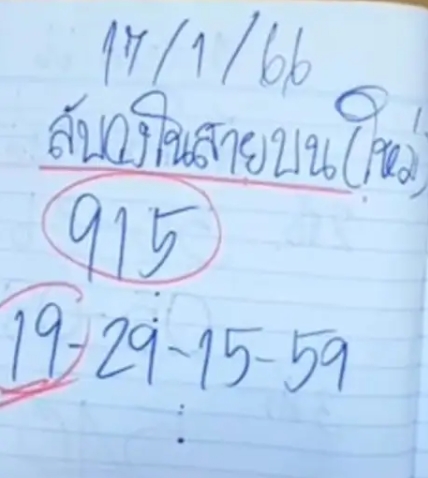 17/1/66
สับวงในสายบน (ใหม่)
915
19-29-15-59